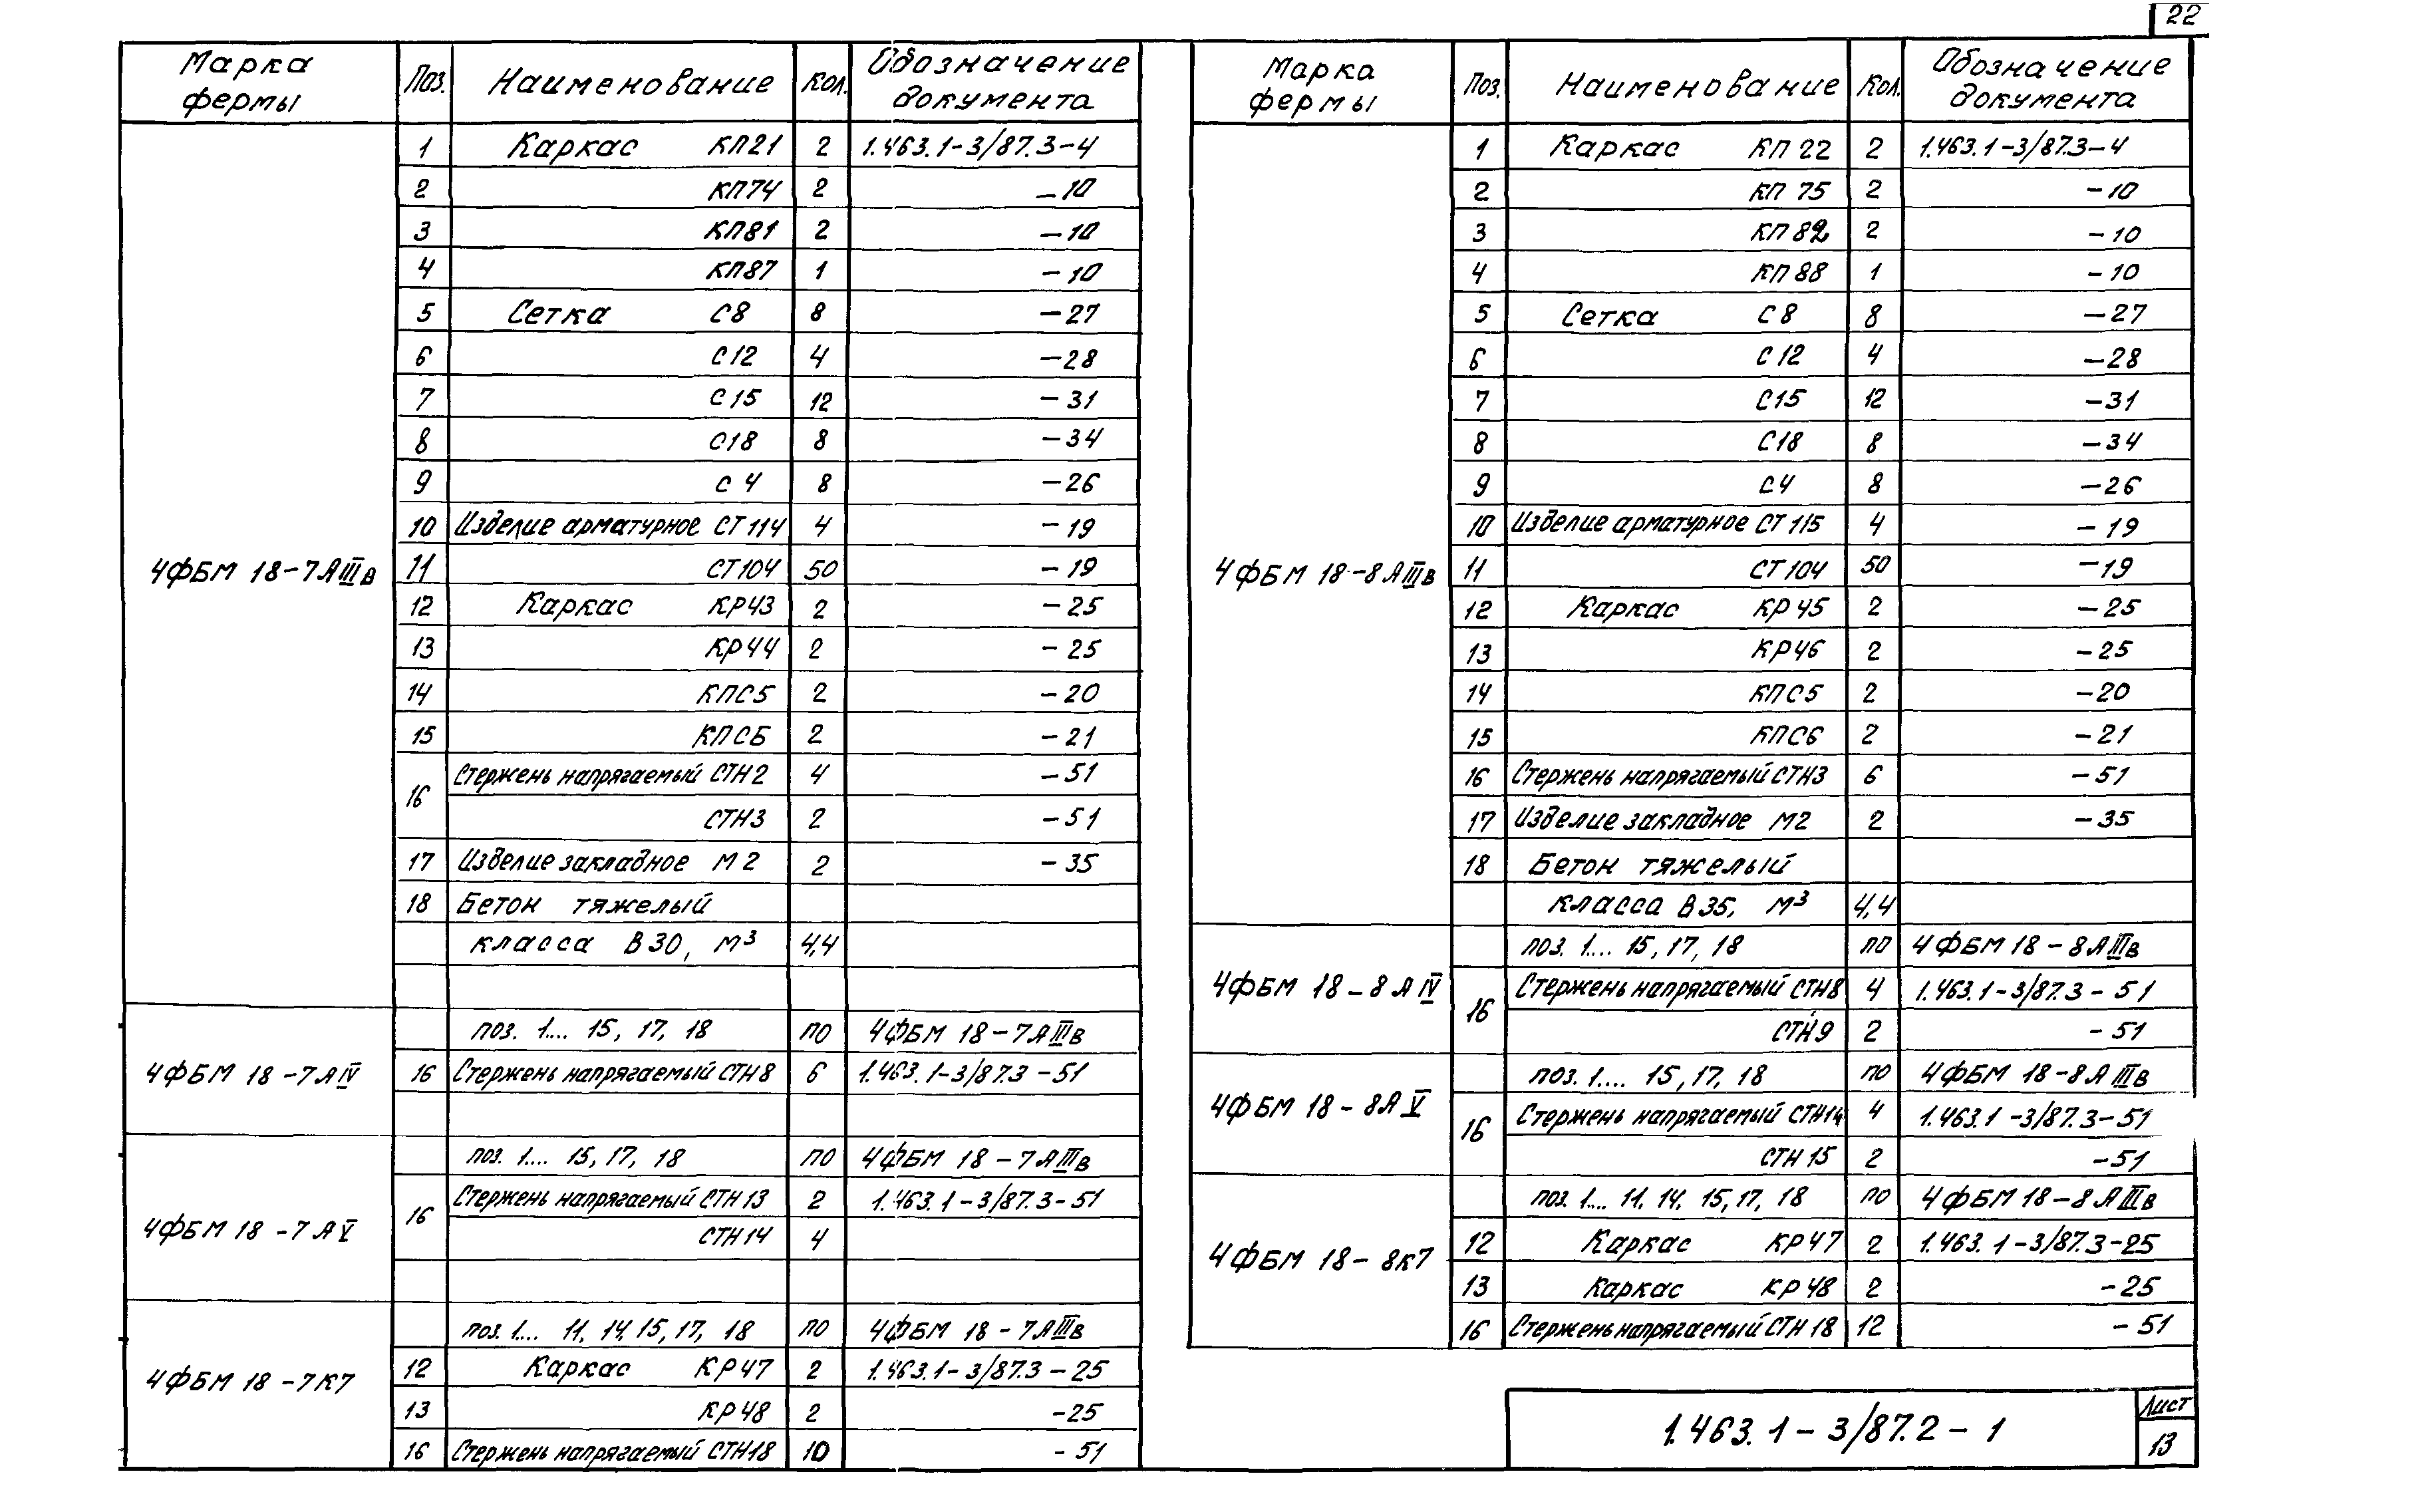 22
Марка фермы Поз. Наименование Кол. Обозначение документа
4ФБМ 18-7АIIIв
1 Каркас КП21 2 1.463.1-3/87.3-4
2 КП74 2 -10
3 КП81 2 -10
4 КП87 1 -10
5 Сетка С8 8 -27
6 С12 4 -28
7 С15 12 -31
8 С18 8 -34
9 С4 8 -26
10 Изделие арматурное СТ114 4 -19
11 СТ104 50 -19
12 Каркас КР43 2 -25
13 КР44 2 -25
14 КПС5 2 -20
15 КПСБ 2 -21
16 Стержень напрягаемый СТН2 4 -51
СТН3 2 -51
17 Изделие закладное М2 2 -35
18 Бетон тяжелый
класса В30, м³ 4,4
4ФБМ 18-7АIV
поз. 1.... 15, 17, 18 по 4ФБМ 18-7АIIIв
16 Стержень напрягаемый СТН8 6 1.463.1-3/87.3-51
4ФБМ 18-7АV
поз. 1.... 15, 17, 18 по 4ФБМ 18-7АIIIв
16 Стержень напрягаемый СТН13 2 1.463.1-3/87.3-51
СТН14 4
4ФБМ 18-7К7
поз. 1.... 11, 14, 15, 17, 18 по 4ФБМ 18-7АIIIв
12 Каркас КР47 2 1.463.1-3/87.3-25
13 КР48 2 -25
16 Стержень напрягаемый СТН18 10 -51
Марка фермы Поз. Наименование Кол. Обозначение документа
4ФБМ 18-8АIIIв
1 Каркас КП22 2 1.463.1-3/87.3-4
2 КП75 2 -10
3 КП82 2 -10
4 КП88 1 -10
5 Сетка С8 8 -27
6 С12 4 -28
7 С15 12 -31
8 С18 8 -34
9 С4 8 -26
10 Изделие арматурное СТ115 4 -19
11 СТ104 50 -19
12 Каркас КР45 2 -25
13 КР46 2 -25
14 КПС5 2 -20
15 КПС6 2 -21
16 Стержень напрягаемый СТН3 6 -51
17 Изделие закладное М2 2 -35
18 Бетон тяжелый
класса В35, м³ 4,4
4ФБМ 18-8АIV
поз. 1.... 15, 17, 18 по 4ФБМ 18-8АIIIв
16 Стержень напрягаемый СТН8 4 1.463.1-3/87.3-51
СТН9 2 -51
4ФБМ 18-8АV
поз. 1.... 15, 17, 18 по 4ФБМ 18-8АIIIв
16 Стержень напрягаемый СТН14 4 1.463.1-3/87.3-51
СТН15 2 -51
4ФБМ 18-8К7
поз. 1.... 11, 14, 15, 17, 18 по 4ФБМ 18-8АIIIв
12 Каркас КР47 2 1.463.1-3/87.3-25
13 Каркас КР48 2 -25
16 Стержень напрягаемый СТН18 12 -51
1.463.1-3/87.2-1
Лист
13